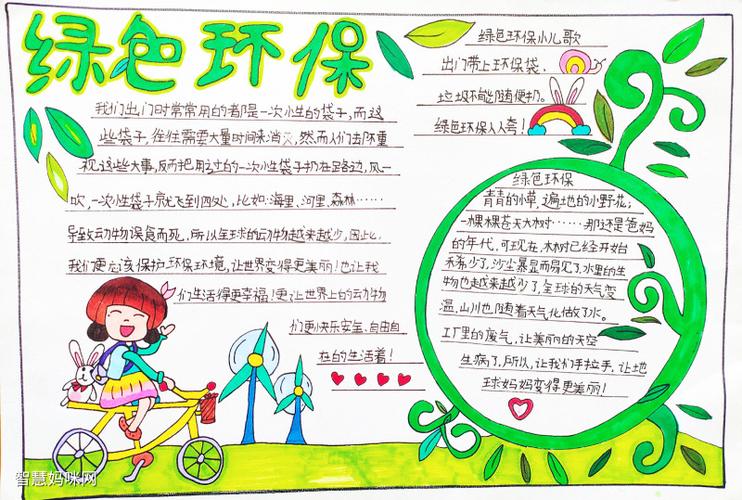 绿色环保
我们出门时常常用的都是一次性的袋子,而这
些袋子,往往需要大量时间来消灭,然而人们去不重
视这些大事,反而把用过的一次性袋子扔在路边,风一
吹,一次性袋子就飞到四处,比如:海里、河里、森林……
导致动物误食而死,所以全球的动物越来越少,因此,
我们更应该保护环保环境,让世界变得更美丽!也让我
们生活得更幸福!更让世界上的动物
们更快乐安全、自由自
在的生活着!
绿色环保小儿歌
出门带上环保袋、
垃圾不能随便扔。
绿色环保人人夸!
绿色环保
青青的小草,遍地的小野花;
一棵棵苍天大树……那还是爸妈
的年代,可现在,木树已经开始
稀少了,沙尘暴显而易见了,水里的生
物也越来越少了,全球的天气变
温,山川也随着天气化做了水。
工厂里的废气,让美丽的天空
生病了,所以,让我们手拉手,让地
球妈妈变得更美丽!
智慧妈咪网